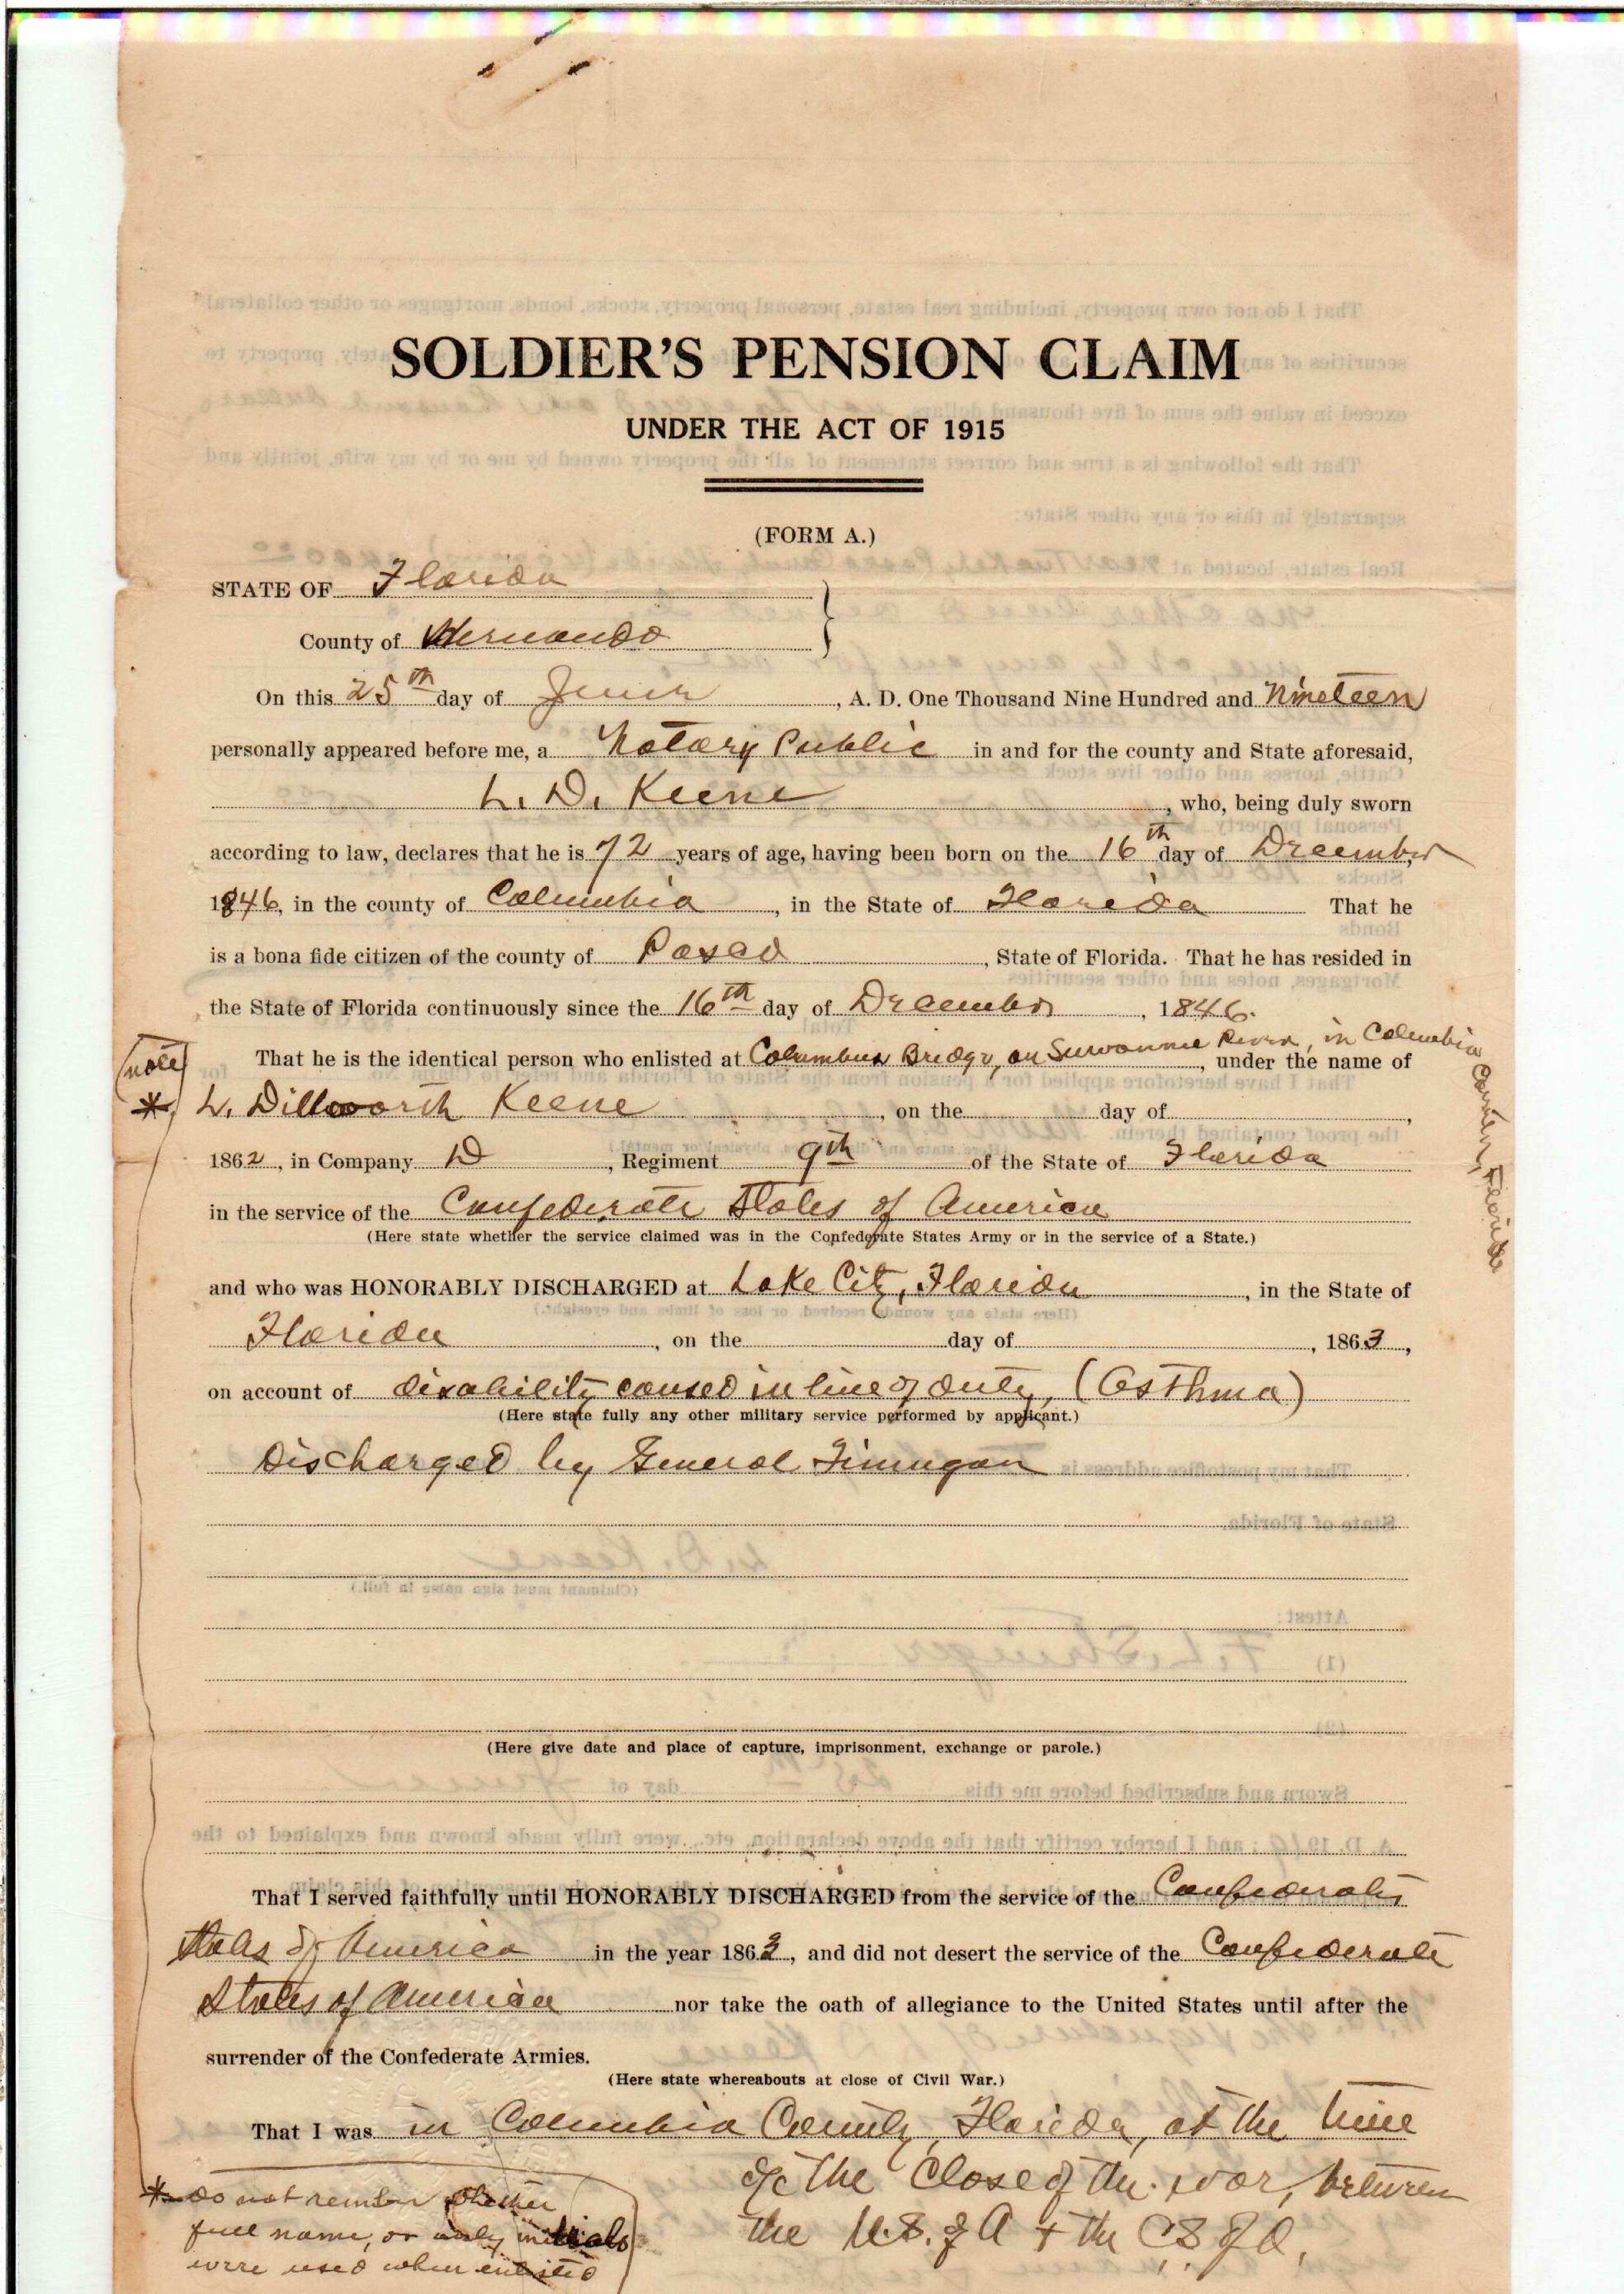 SOLDIER'S PENSION CLAIM
UNDER THE ACT OF 1915
(FORM A.)
STATE OF Florida
County of Hernando
On this 25th day of June, A. D. One Thousand Nine Hundred and Nineteen
personally appeared before me, a Notary Public in and for the county and State aforesaid,
L. D. Keene, who, being duly sworn
according to law, declares that he is 72 years of age, having been born on the 16th day of December,
1846, in the county of Columbia, in the State of Florida That he
is a bona fide citizen of the county of Pasco, State of Florida. That he has resided in
the State of Florida continuously since the 16th day of December, 1846.
(note) That he is the identical person who enlisted at Columbus Bridge, on Suwannee River, in Columbia County, Florida, under the name of
* L. Dillworth Keene, on the day of,
1862, in Company D, Regiment 9th of the State of Florida
in the service of the Confederate States of America
(Here state whether the service claimed was in the Confederate States Army or in the service of a State.)
and who was HONORABLY DISCHARGED at Lake City, Florida, in the State of
Florida, on the day of, 1863,
on account of disability caused in line of duty, (Asthma)
(Here state fully any other military service performed by applicant.)
Discharged by General Finnegan
(Here give date and place of capture, imprisonment, exchange or parole.)
That I served faithfully until HONORABLY DISCHARGED from the service of the Confederate
States of America in the year 1863, and did not desert the service of the Confederate
States of America nor take the oath of allegiance to the United States until after the
surrender of the Confederate Armies.
(Here state whereabouts at close of Civil War.)
That I was in Columbia County, Florida, at the time
of the Close of the war, between
the U.S. of A & the C.S. of A.
* do not remember whether
full name, or only initials
were used when enlisted